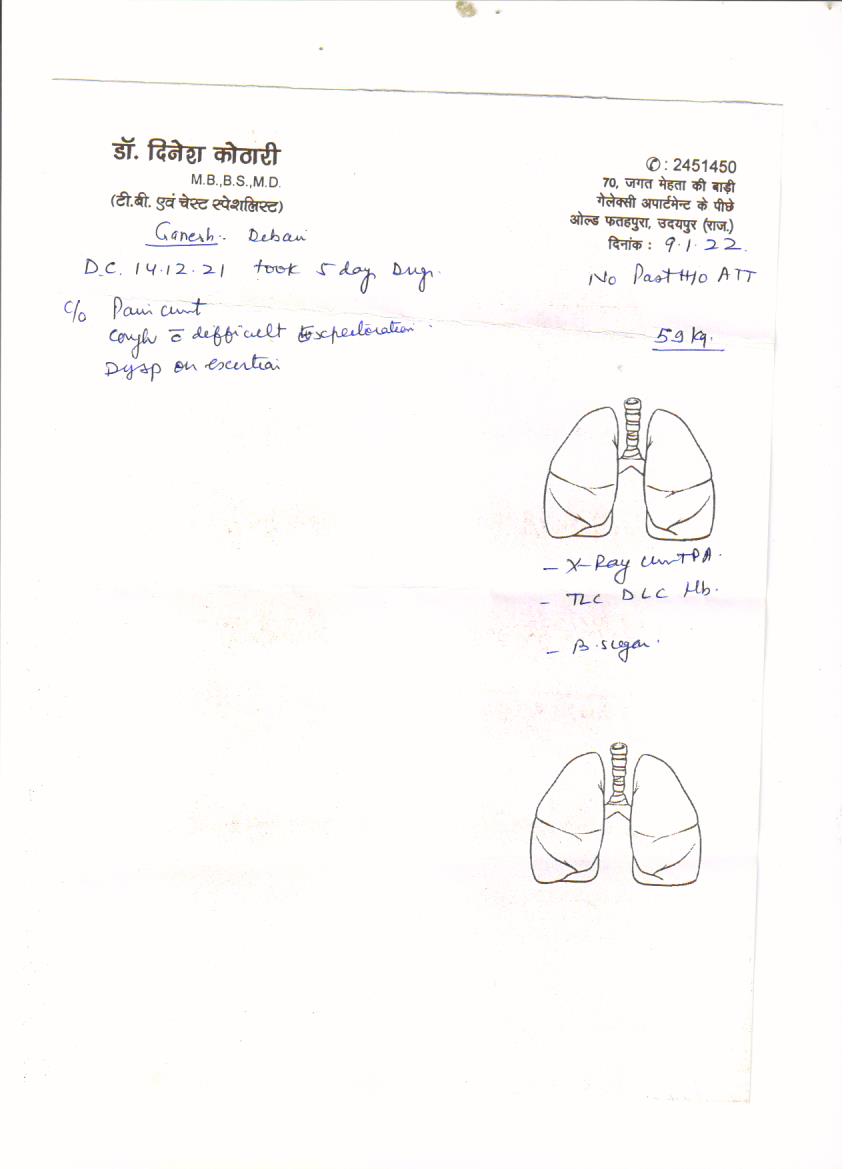 डॉ. दिनेश कोठारी
M.B.,B.S.,M.D.
(टी.बी. एवं चेस्ट स्पेशलिस्ट)
✆ : 2451450
70, जगत मेहता की बाड़ी
गेलेक्सी अपार्टमेन्ट के पीछे
ओल्ड फतहपुरा, उदयपुर (राज.)
दिनांक : 9.1.22.
Ganesh. 
D.C. 14.12.21 took 5 day Drugs.
No Past H/O ATT
C/o Pain
Cough c̄ defficult Expectoration.
59 kg.
Dysp on excertion
- X-Ray PA.
- TLC DLC Hb.
- B. sugar.